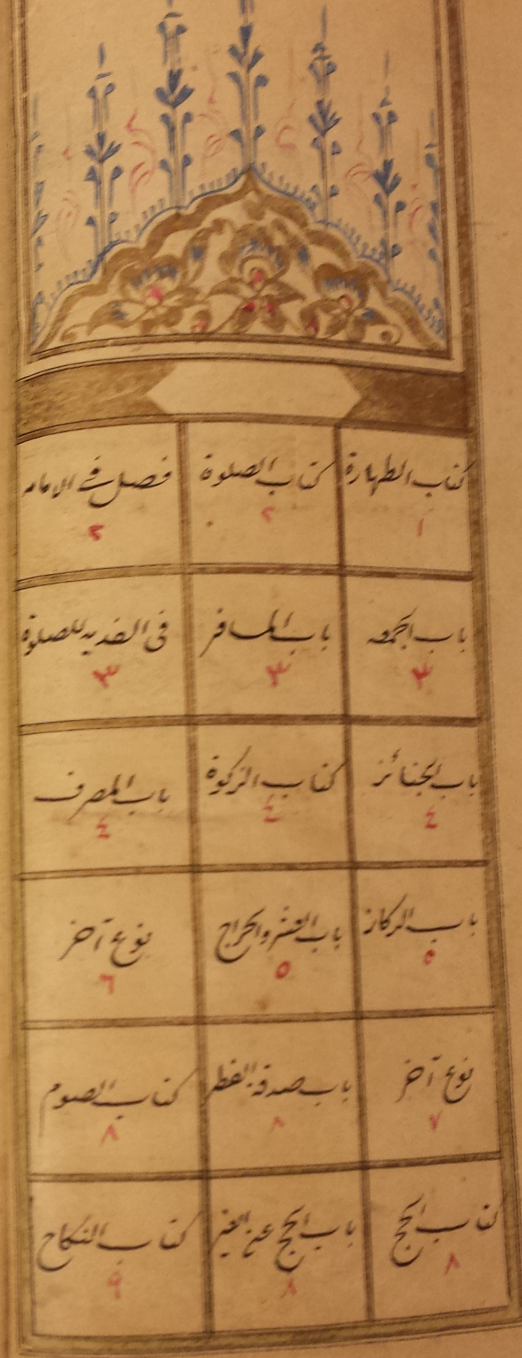 كتاب الطهارة
١
كتاب الصلوة
٢
فصل في الامامه
٢
باب الجمعه
٣
باب المسافر
٣
فى الفديه للصلوة
٣
باب الجنائز
٤
كتاب الزكوة
٤
باب المصرف
٤
باب الركاز
٥
باب العشر والخراج
٥
نوع آخر
٦
نوع آخر
٧
باب صدقة الفطر
٨
كتاب الصوم
٨
كتاب الحج
٨
باب الحج عن الغير
٨
كتاب النكاح
٩